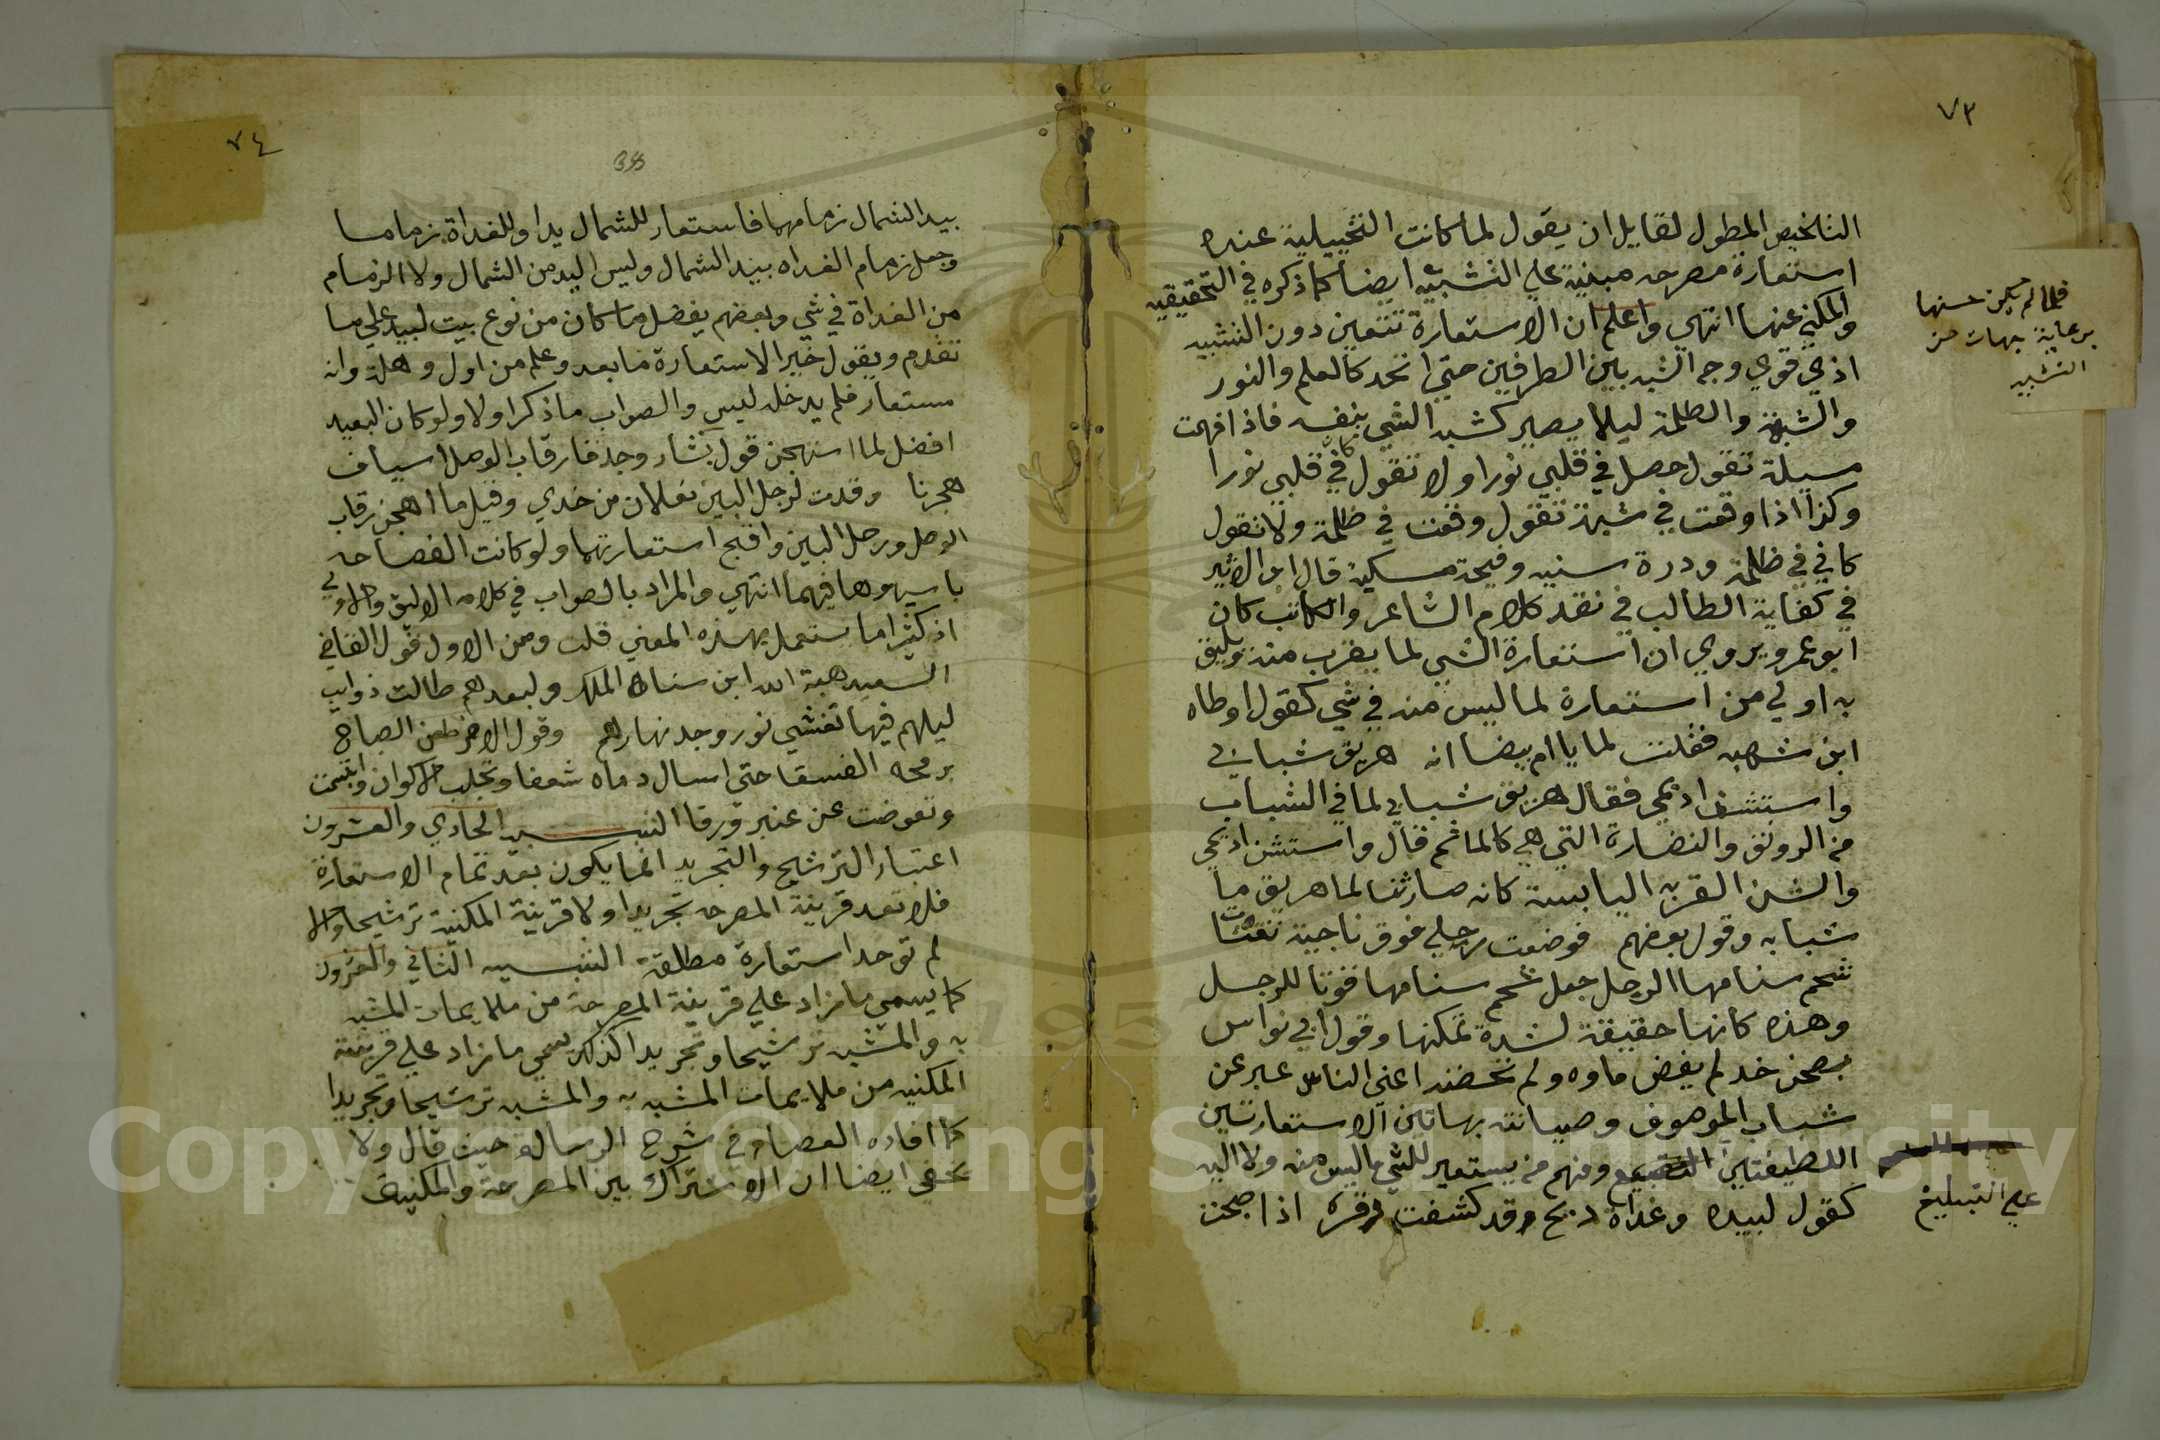 ٧٣
التلخيص المطول لقايل ان يقول لما كانت التخييلية عنده
استعارة مصرحه مبنية علي التشبيه ايضا كما ذكره في التحقيقيه
والمكني عنها انتهي واعلم ان الاستعارة تتعين دون التشبيه
اذي قوي وجه الشبه بين الطرفين حتي اتحد كالعلم والنور
والشبهة والظلمة ليلا يصير كشبه الشي بنفسه فاذا فهمت
مسيلة تقول حصل في قلبي نورا ولا تقول كان في قلبي نورا
وكذا اذا وقعت في شبهة تقول وقعت في ظلمة ولا تقول
كاني في ظلمة ودرة سنيه وفيحة مسكية قال ابن الاثير
في كفاية الطالب في نقد كلام الشاعر والكاتب كان
ابو عمرو يروي ان استعارة الشي لما يقرب منه ويليق
به اولي من استعارة لما ليس منه في شي كقول اوطاه
ابن شهبه فقلت لما يا ام بيضا انه هريق شبابي
واستشن اديمي فقال هريق شبابي لما في الشباب
من الرونق والنضارة التي هي كالما ثم قال واستشن اديمي
والشن القربه اليابسة كانه صار شنا لما هريق ما
شبابه وقول بعضهم فوضعت رحلي فوق ناجية تقتات
شحم سنامها الرحل جعل شحم سنامها قوتا للرحل
وهذه كانها حقيقة لشدة تمكنها وقول ابي نواس
بصحن خد لم يغض ماوه ولم تخضه اعني الناس عبر عن
شباب الموصوف وصيانته بهاتين الاستعارتين
اللطيفتين ومنهم من يستعير للشي ما ليس منه ولا اليه
كقول لبيده وغداة ريح قد كشفت وقرة اذا اصبحت
فلما لم يكن حسنها
برعاية جهات حسن
التشبيه
علي التبليغ
٧٤
بيد الشمال زمامها فاستعار للشمال يدا وللغداة زماما
وجعل زمام الغداه بيد الشمال وليس اليد من الشمال ولا الزمام
من الغداة في شي وبعضهم يفضل ما كان من نوع بيت لبيد علي ما
تقدم ويقول خير الاستعارة ما بعد وعلم من اول وهلة وانه
مستعار فلم يدخله لبس والصواب ما ذكر اولا ولو كان البعيد
افضل لما استهجن قول بشار وجذت رقاب الوصل اسياف
هجرنا وقدت لرجل البين نعلان من خدي وقيل ما اهجن رقاب
الوصل ورجل البين واقبح استعارتهما ولو كانت الفصاحه
باسرها فيهما انتهي والمراد بالصواب في كلامه الاليق والاولي
اذ كثيرا ما يستعمل بهذه المعني قلت ومن الاول قول القاضي
السعيد هبة الله ابن سناء الملك ولبعدهم طالت ذوايب
ليلهم فيها تغشي نور وجد نهارهم وقول الاخر طعن الصباح
برمحه الغسقا حتي اسال دماه شفقا وتجلب الاكوان وابتسمت
وتعوضت عن عنبر ورقا التنبيه الحادي والعشرون
اعتبار الترشيح والتجريد انما يكون بعد تمام الاستعارة
فلا تعد قرينة المصرحه تجريدا ولا قرينة المكنية ترشيحا والا
لم توجد استعارة مطلقة التنبيه الثاني والعشرون
كما يسمي ما زاد علي قرينة المصرحة من ملايمات المشبه
به والمشبه ترشيحا وتجريدا كذلك يسمي ما زاد علي قرينة
المكنيه من ملايمات المشبه به والمشبه ترشيحا وتجريدا
كما افاده العصام في شرح الرساله حيث قال ولا
يخفي ايضا ان الاشتراك بين المصرحة والمكنية
Copyright © King Saud University
1957